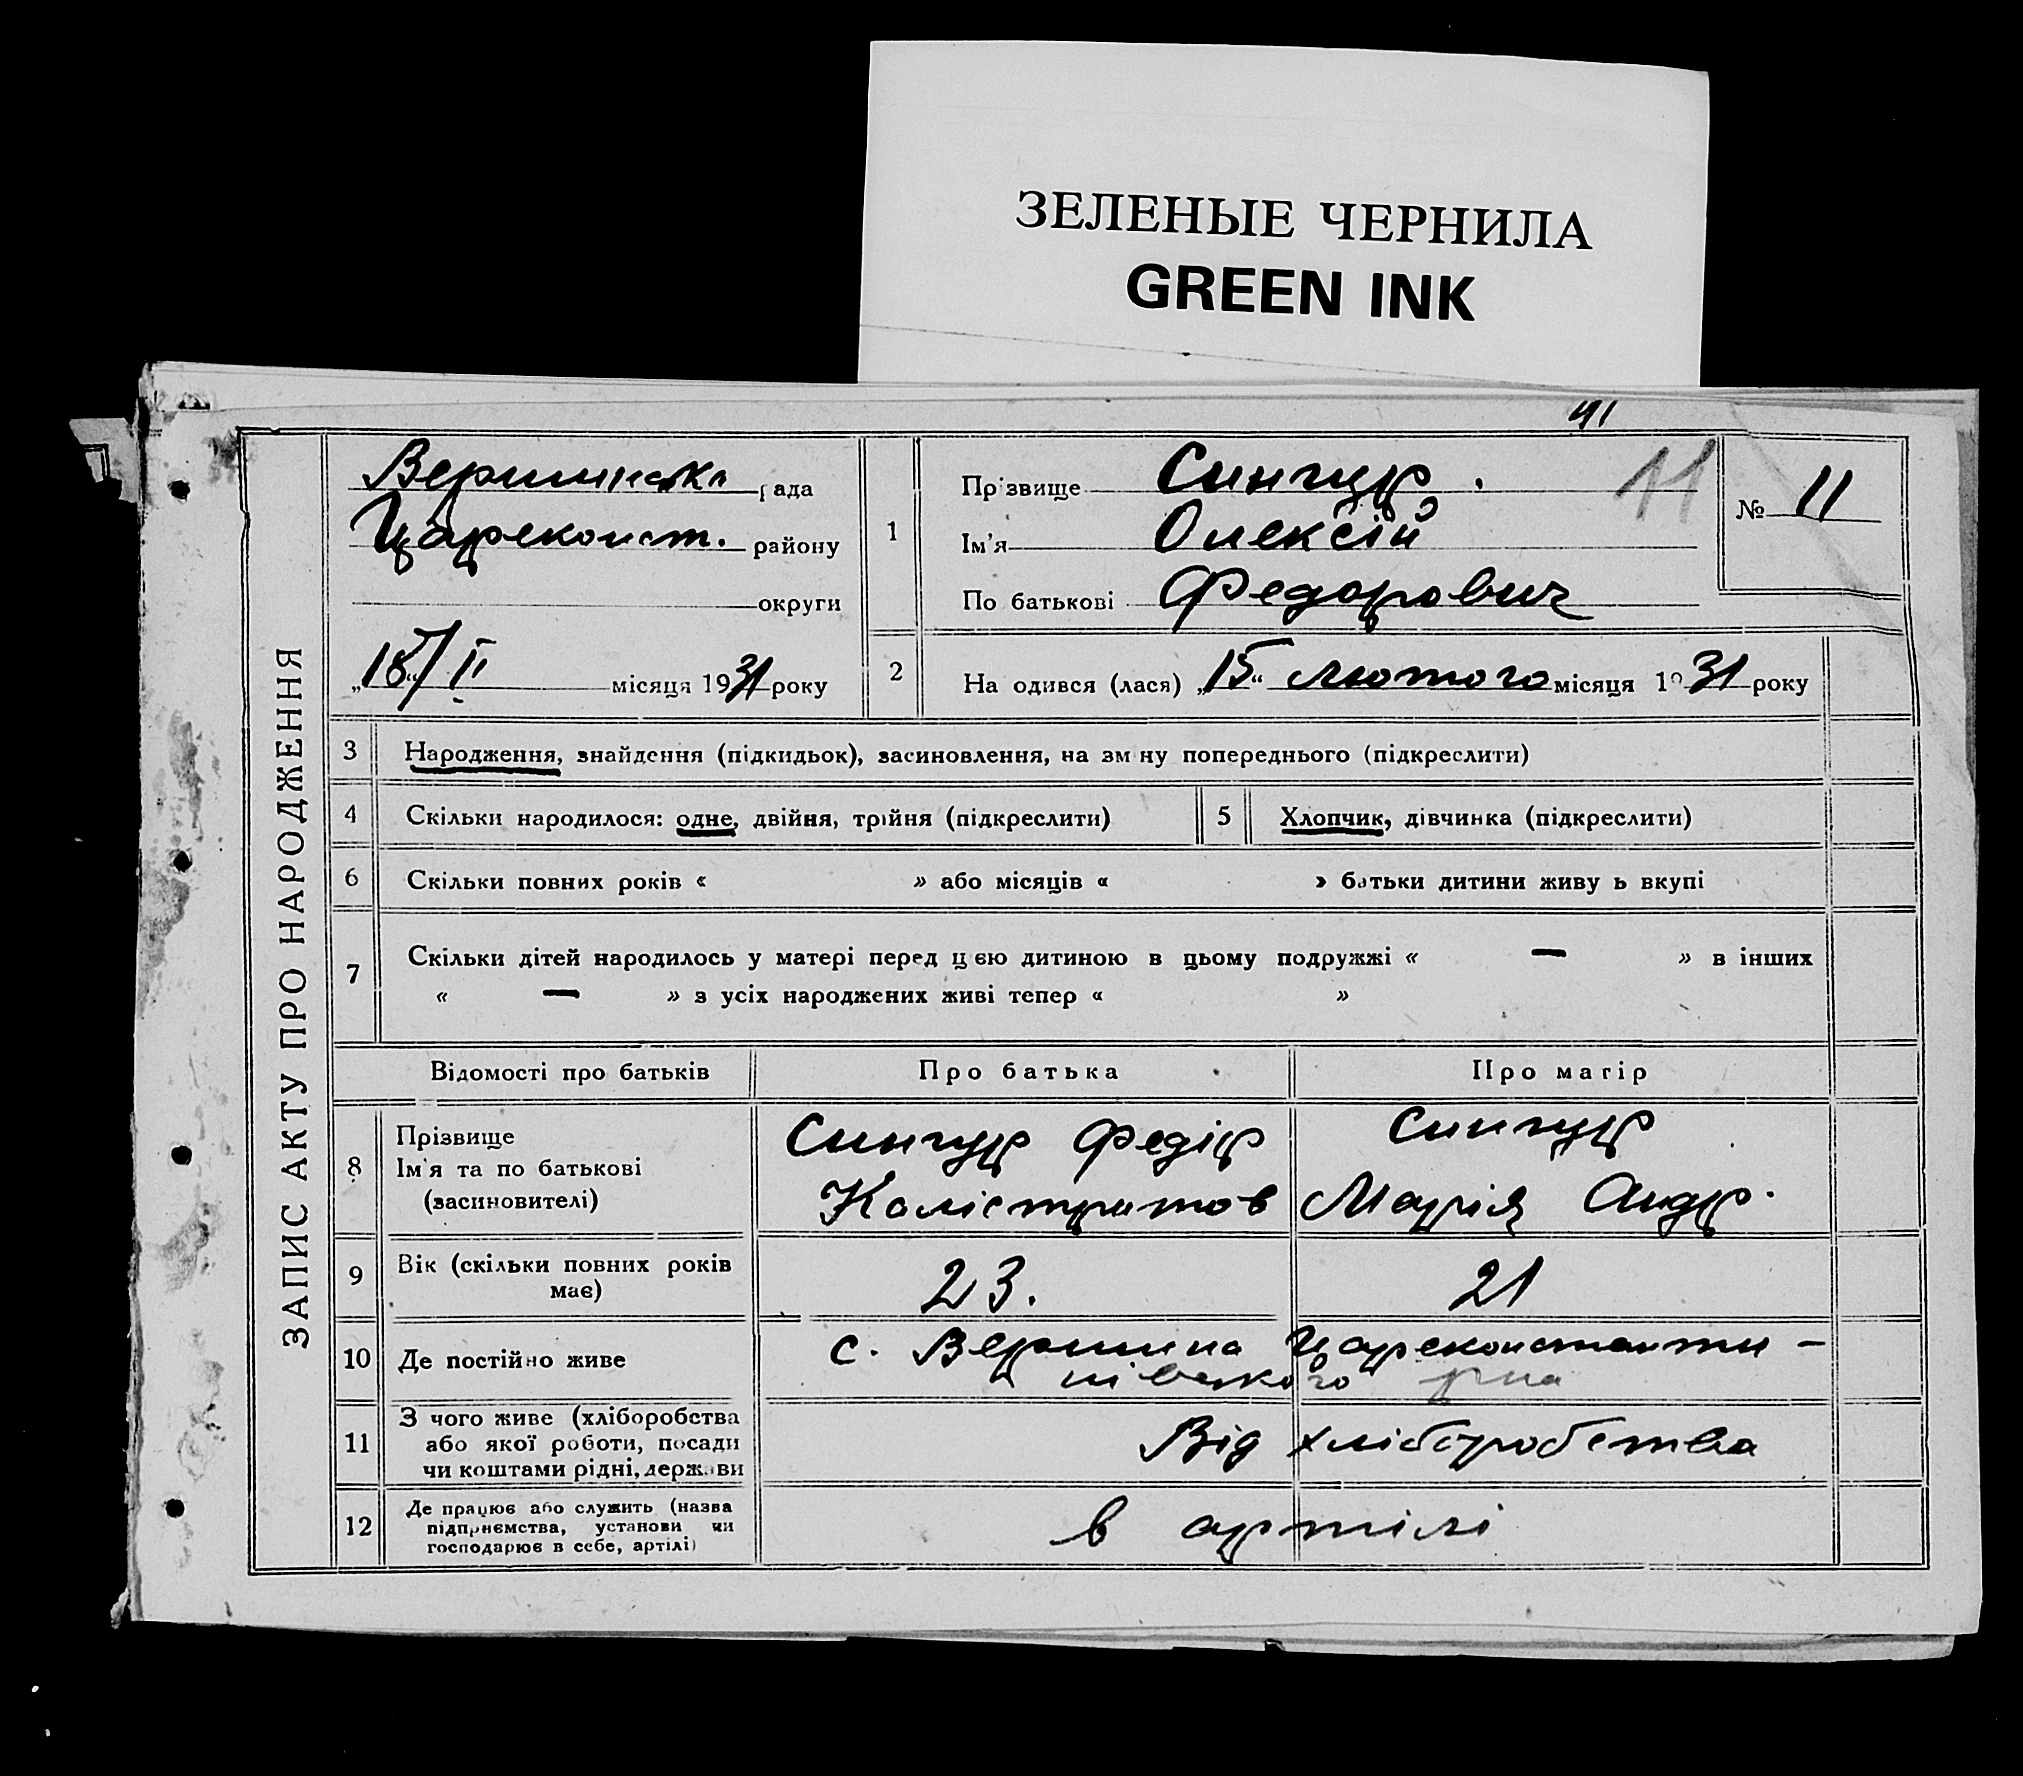 ЗЕЛЕНЫЕ ЧЕРНИЛА
GREEN INK
91
ЗАПИС АКТУ ПРО НАРОДЖЕННЯ
Вершинська рада
Цареконст. району
округи
„18“/II місяця 1931 року
1
Прізвище Сингур. 11
Ім'я Олексій
По батькові Федорович
№ 11
2
На одився (лася) „15“ лютого місяця 1931 року
3 Народження, знайдення (підкидьок), засиновлення, на зм ну попереднього (підкреслити)
4 Скільки народилося: одне, двійня, трійня (підкреслити)
5 Хлопчик, дівчинка (підкреслити)
6 Скільки повних років « » або місяців « » батьки дитини живу ь вкупі
7 Скільки дітей народилось у матері перед цією дитиною в цьому подружжі « — » в інших
« — » з усіх народжених живі тепер « »
Відомості про батьків Про батька Про матір
8 Прізвище
Ім'я та по батькові
(засиновителі)
Сингур Федір
Калістратов
Сингур
Марія Андр.
9 Вік (скільки повних років
має)
23. 21
10 Де постійно живе
с. Вершина Цареконстанти-
нівського рна
11 З чого живе (хліборобства
або якої роботи, посади
чи коштами рідні, держави
Від хліборобства
12 Де працює або служить (назва
підприємства, установи чи
господарює в себе, артілі)
в артілі